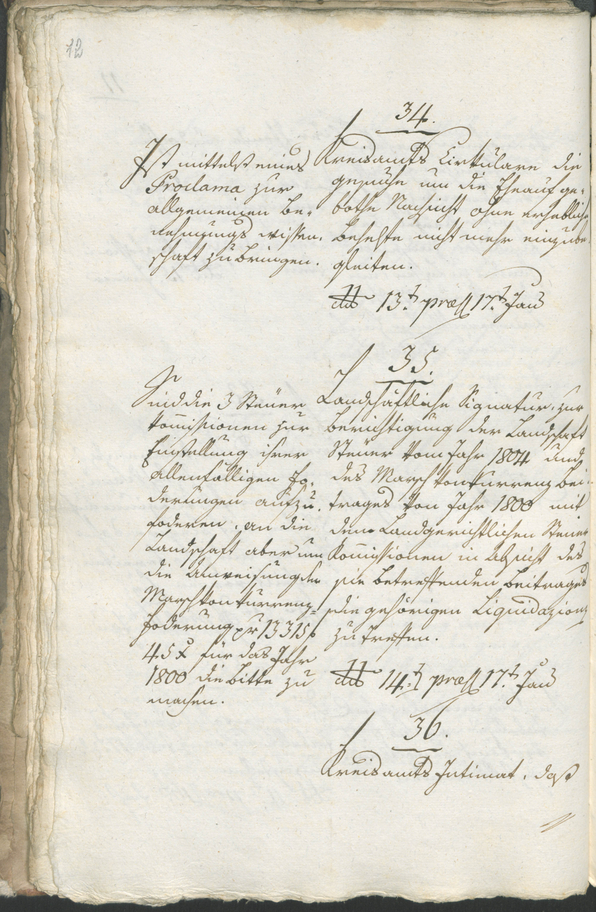 12
34.
Ist mittelst eines
Proclama zur
allgemeinen Be-
nehmungs wissen-
schaft zu bringen.
Kreisamts Cirkulare die
gesuche um die Eheaufge-
boths Nachsicht ohne erhebliche
behelfe nicht mehr einzube-
gleiten.
dto 13t præs 17t Jan
35.
Sind die 3 Steuer
Kom̅issionen zur
Einstellung ihrer
allenfälligen Fo-
derungen aufzu-
foderen, an die
Landschaft aber um
die Anweisung der
Marschkonkurrenz-
foderung pr 13315 f
45 x für das Jahr
1800 die Bitte zu
machen.
Landschäftliche Signatur, zur
berichtigung der Landschaft
Steuer vom Jahr 1804 und
des Marschkonkurrenz Bei-
trages von Jahr 1800 mit
dem Landgerichtlichen Steuer
Kom̅issionen in Absicht des
sie betreffenden beitrages
die gehörigen Liquidazionen
zu treffen.
dto 14t præs 17t Jan
36.
Kreisamts Intimat, daß